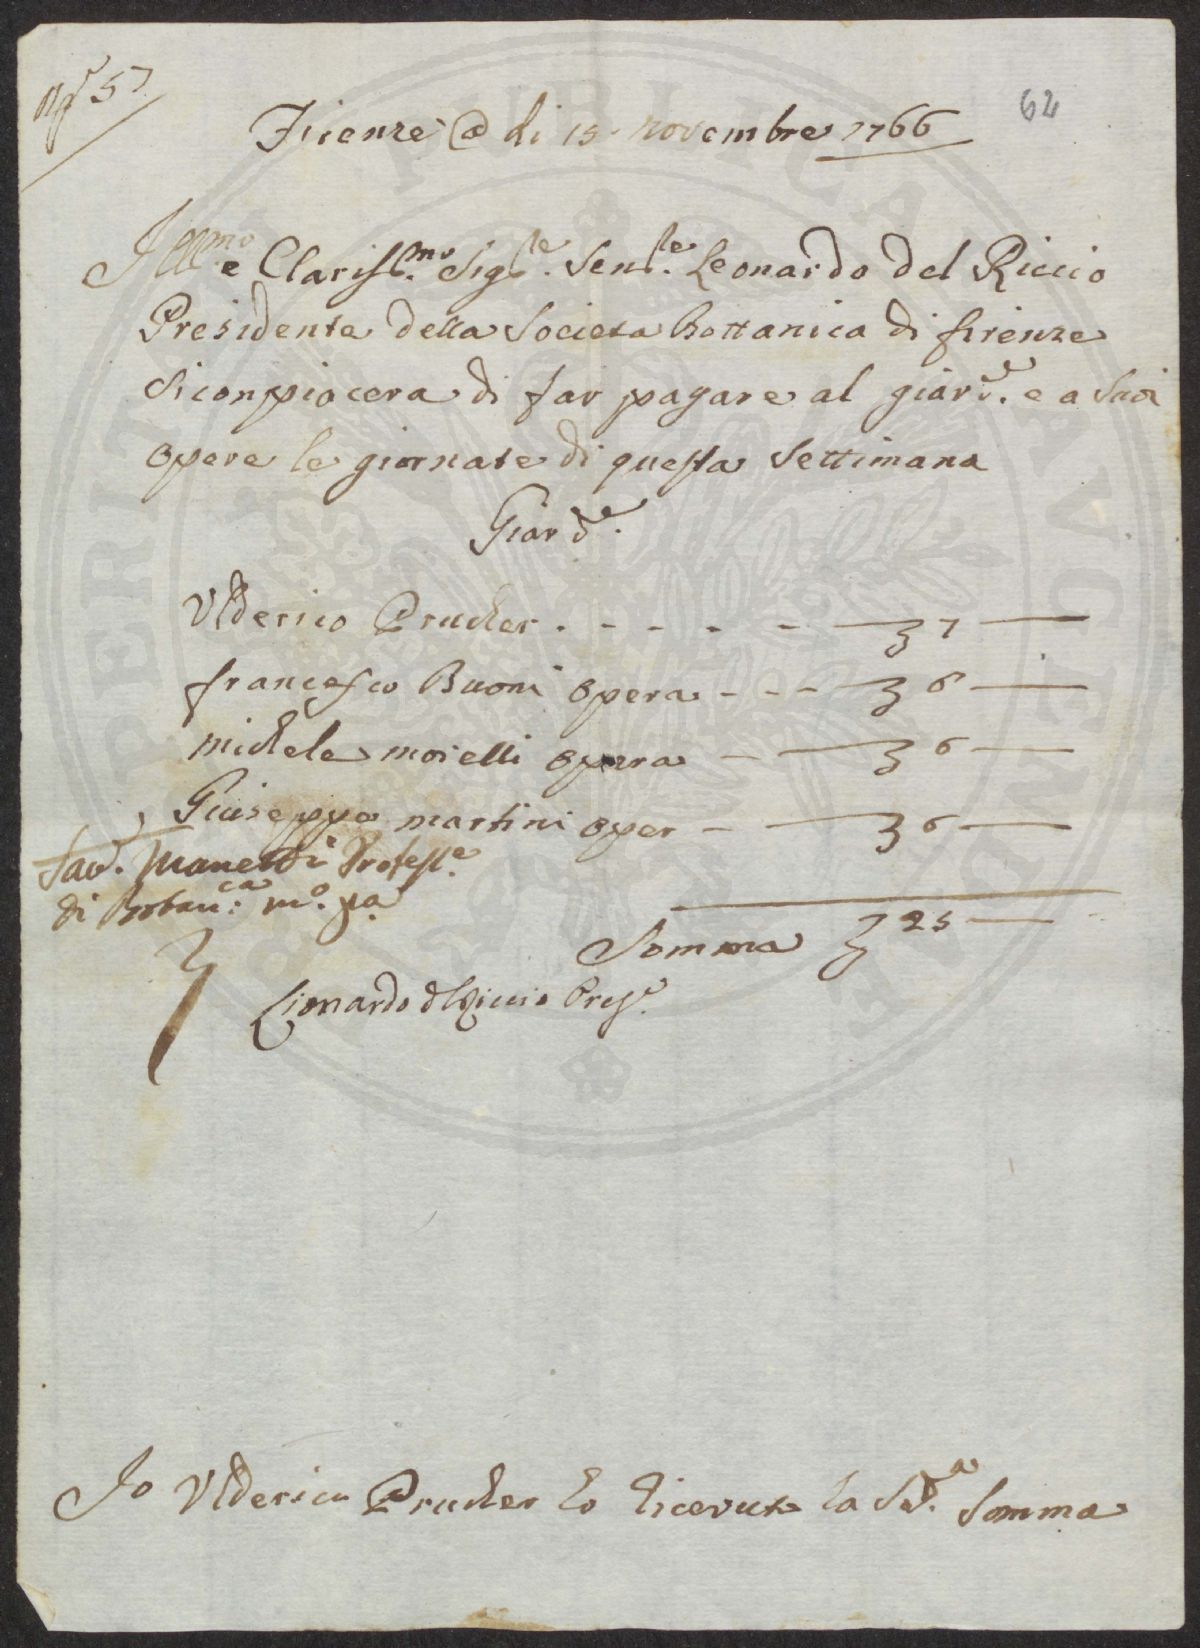 N.º 57
62
Firenze @ di 15 novembre 1766
Ill.mo e Clariss.mo Sig.le Sen.le Leonardo del Riccio
Presidente della Societa Bottanica di firenze
Si conpiacera di far pagare al giard.e e a Suoi
opere le giornate di questa Settimana
Giard.e
Vlderico Prucher . - - - - - ʒ 7 —
francesco Buoni opera - - - ʒ 6 —
michele moielli opera — ʒ 6 —
Giuseppe martini oper — ʒ 6 —
Sav. Manetti Profess.e
di Botan.ca m.o p.a
Somma ʒ 25 —
Lionardo del Riccio Pres.e
Io Vlderico Prucher ho Riceuuto la Sud.a Somma
PUBLICA
PERITAS